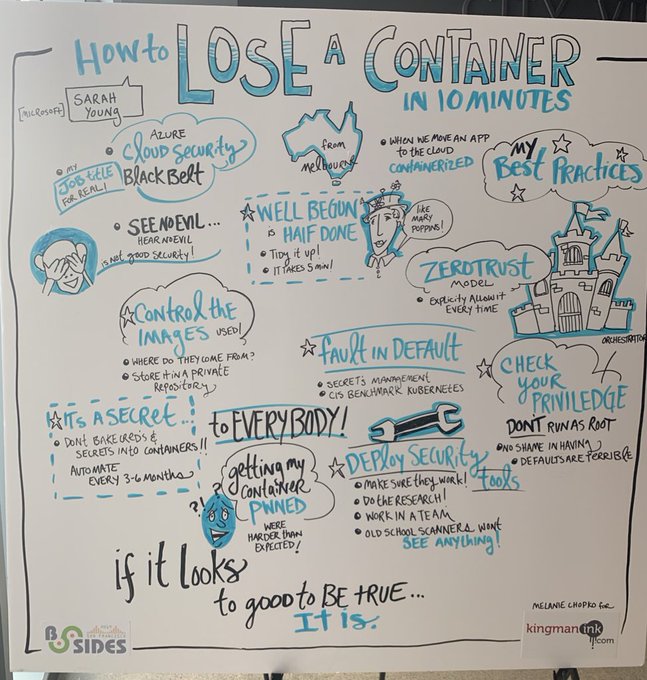 How to LOSE A CONTAINER
IN 10 MINUTES
[MICROSOFT]
SARAH
YOUNG
AZURE
CLOUD SECURITY
BLACK BELT
• MY
JOB TITLE
FOR REAL!
from
Melbourne
• WHEN WE MOVE AN APP
TO THE CLOUD
CONTAINERIZED
MY
BEST PRACTICES
• SEE NO EVIL...
HEAR NO EVIL
IS NOT GOOD SECURITY!
WELL BEGUN
is
HALF DONE
• Tidy it up!
• IT TAKES 5 MIN!
like
MARY
POPPINS!
ZERO TRUST
MODEL
• EXPLICITY ALLOW IT
EVERY TIME
ORCHESTRATOR
CONTROL the
IMAGES USED!
• WHERE DO THEY COME FROM?
• STORE IT IN A PRIVATE
REPOSITORY
fault IN DEFAULT
• SECRETS MANAGEMENT
• CIS BENCHMARK KUBERNETES
CHECK
YOUR
PRIVILEDGE
DON'T RUN AS ROOT
• NO SHAME IN HAVING
• DEFAULTS ARE TERRIBLE
IT'S A SECRET...
• DON'T BAKE CREDS &
SECRETS INTO CONTAINERS!!
AUTOMATE
EVERY 3-6 MONTHS
to EVERYBODY!
getting my
container
PWNED
WERE
HARDER THAN
EXPECTED!
?!?
DEPLOY SECURITY
tools
• MAKE SURE THEY WORK!
• DO THE RESEARCH!
• WORK IN A TEAM
• OLD SCHOOL SCANNERS WONT
SEE ANYTHING!
if it looks
to good to BE TRUE...
It is.
BSIDES
SAN FRANCISCO
MELANIE CHOPKO FOR
kingmanink
.com